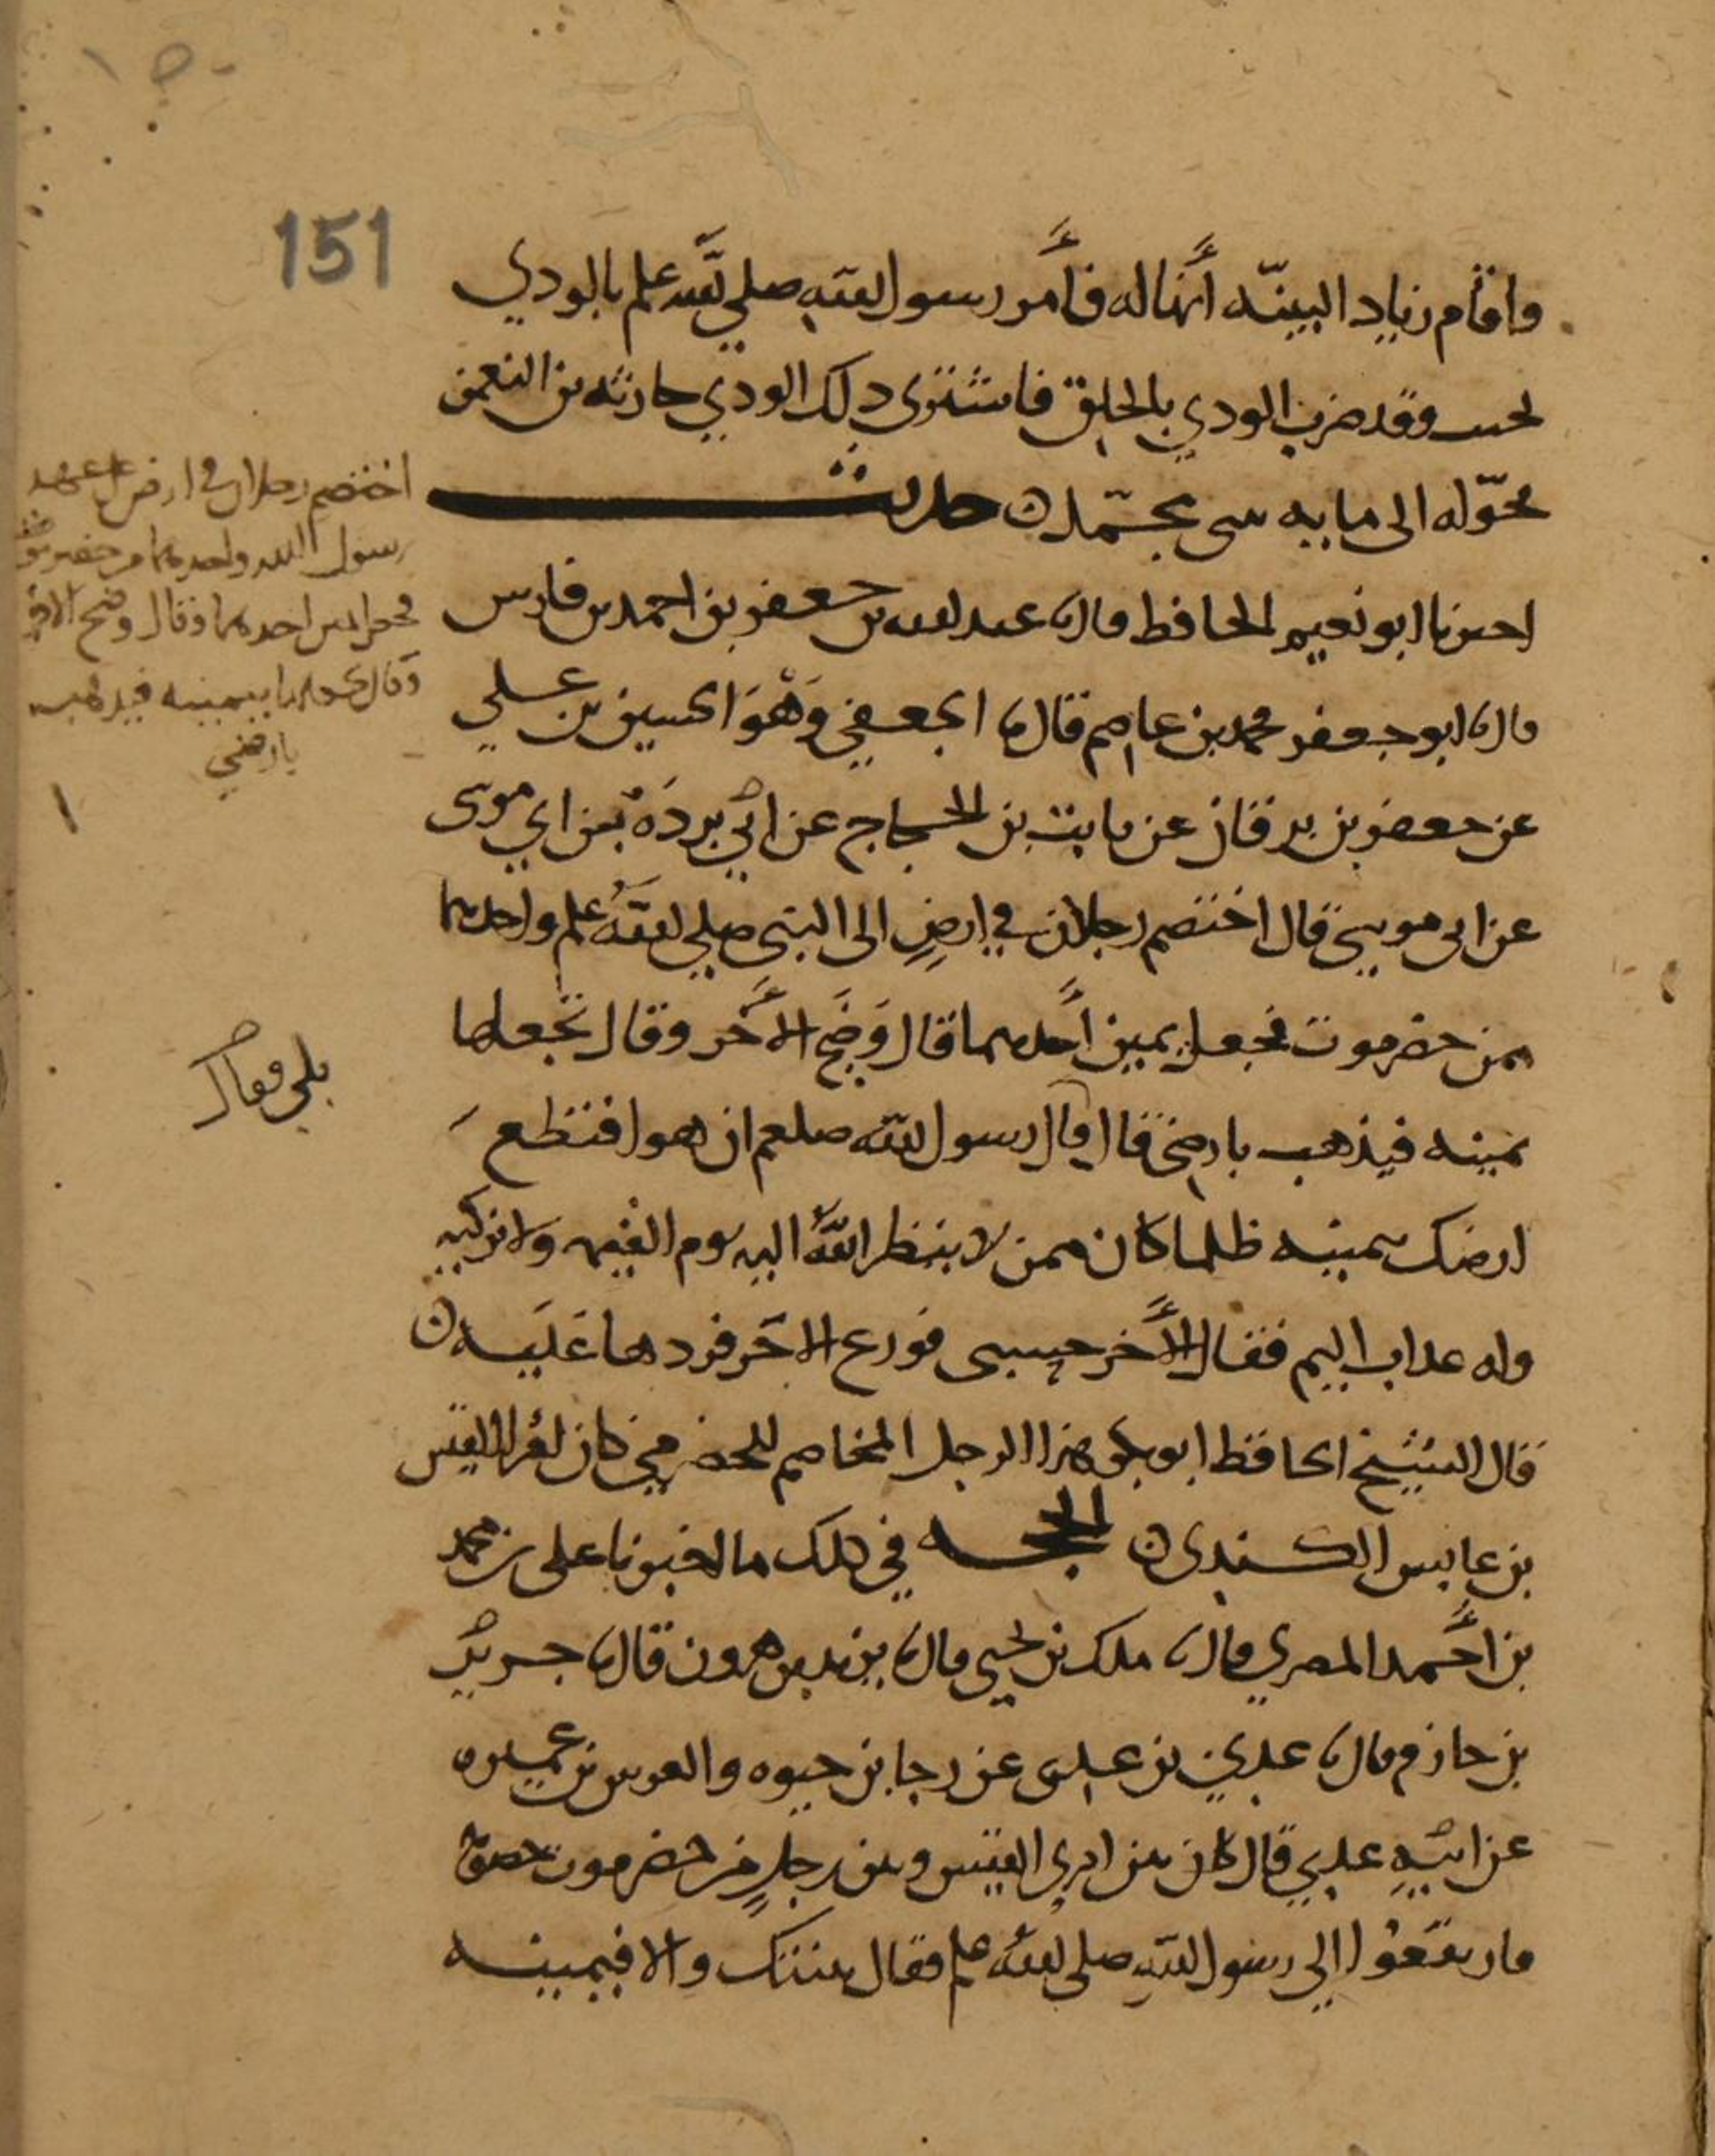 151
واقام زياد البينه أنها له فأمر رسول الله صلى الله علم بالودي
وقد ضرب الودي بالحلق فاشترى ذلك الودي حارثه بن النعمن
محوله الى حديث
اخبرنا ابو نعيم الحافظ قال عبد الله بن جعفر بن احمد بن فارس
قال ابو جعفر محمد بن عاصم قال الجعفي وهو الحسين بن علي
عن جعفر بن برقان عن ثابت بن الحجاج عن ابي برده بن ابي موسى
عن ابي موسى قال اختصم رجلان في ارض الى النبي صلى الله علم واحدهما
من حضرموت فجعل يمين أحدهما قال وضج الآخر وقال تجعلها
يمينه فيذهب بارضي قال قال رسول الله صلعم ان هو اقتطع
ارضك بيمينه ظلما كان ممن لا ينظر الله اليه يوم القيمه ولا يزكيه
وله عذاب اليم فقال الآخر حسبي فورع الآخر فردها عليه
قال الشيخ الحافظ ابو بكر هذا الرجل المخاصم للحضرمي كان امرا القيس
بن عابس الكندي الحجه في ذلك ما اخبرنا علي بن محمد
بن أحمد المصري قال ملك بن يحيى قال يزيد بن هرون قال جرير
بن حازم قال عدي بن عدى عن رجا بن حيوه والعرس بن عميره
عن ابيه عدي قال كان بين امري القيس وبين رجل من حضرموت خصومة
فارتفعوا الى رسول الله صلى الله علم فقال بينتك والا فيمينه
اختصم رجلان في ارض على عهد
رسول الله واحدهما من حضرموت
فجعل اليمين احدهما وقال وضج الاخر
وقال تجعلها بيمينه فيذهب
بارضي
بلى وقال